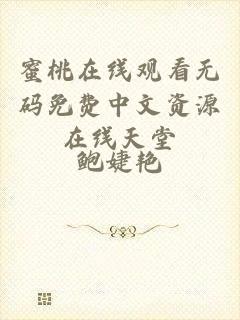 蜜桃在线观看无
码免费中文资源
在线天堂
鲍婕艳